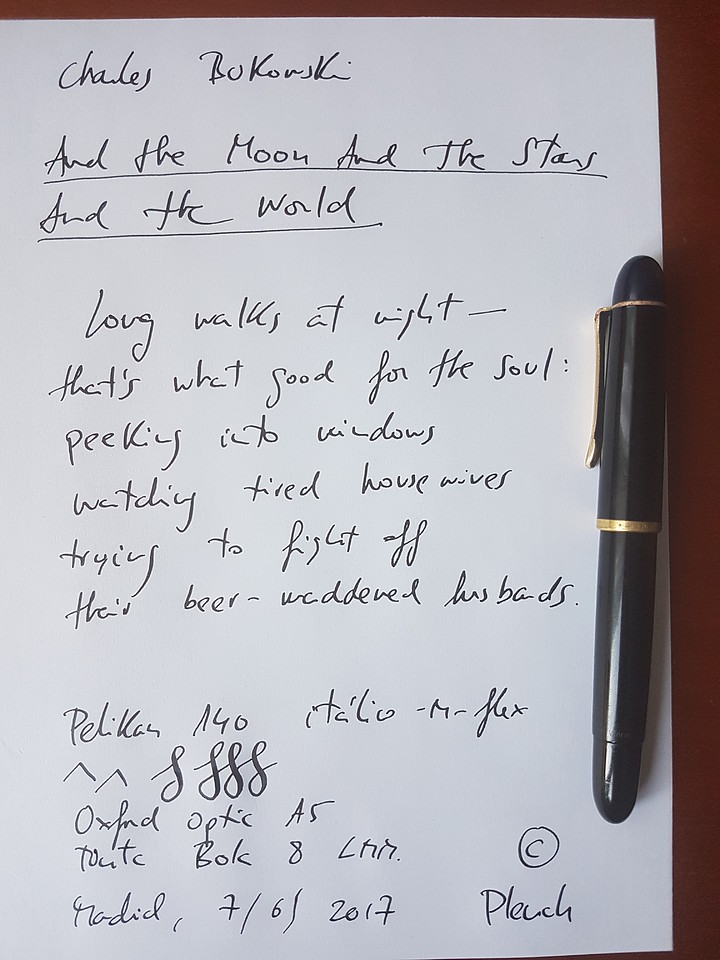 Charles Bukowski
And the Moon And The Stars
And the World
Long walks at night—
that's what good for the soul:
peeking into windows
watching tired housewives
trying to fight off
their beer-maddened husbands.
Pelikan 140 itálico -M- flex
Oxford optic A5
Bok 8 Lmm.
Madrid, 7/6/2017
©